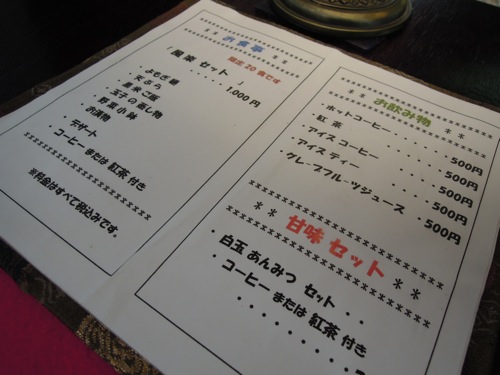 ** お食事 **
限定20食です
・ セット ・・・・ 1,000円
・よもぎ麺
・天ぷら
・ご飯
・玉子の蒸し物
・野菜小鉢
・お漬物
・デザート
・コーヒー または 紅茶 付き
※料金はすべて税込みです。
** お飲み物 **
・ホットコーヒー ・・・・・ 500円
・紅茶 ・・・・・・・ 500円
・アイス コーヒー ・・・・ 500円
・アイス ティー ・・・・ 500円
・グレープフルーツジュース ・500円
** 甘味 セット **
・白玉 あんみつ セット ・・
・コーヒー または 紅茶 付き
・・・・・・・